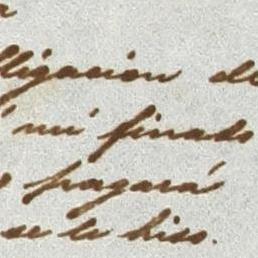 lligacion de
mi finado
pagará
se le hiso.